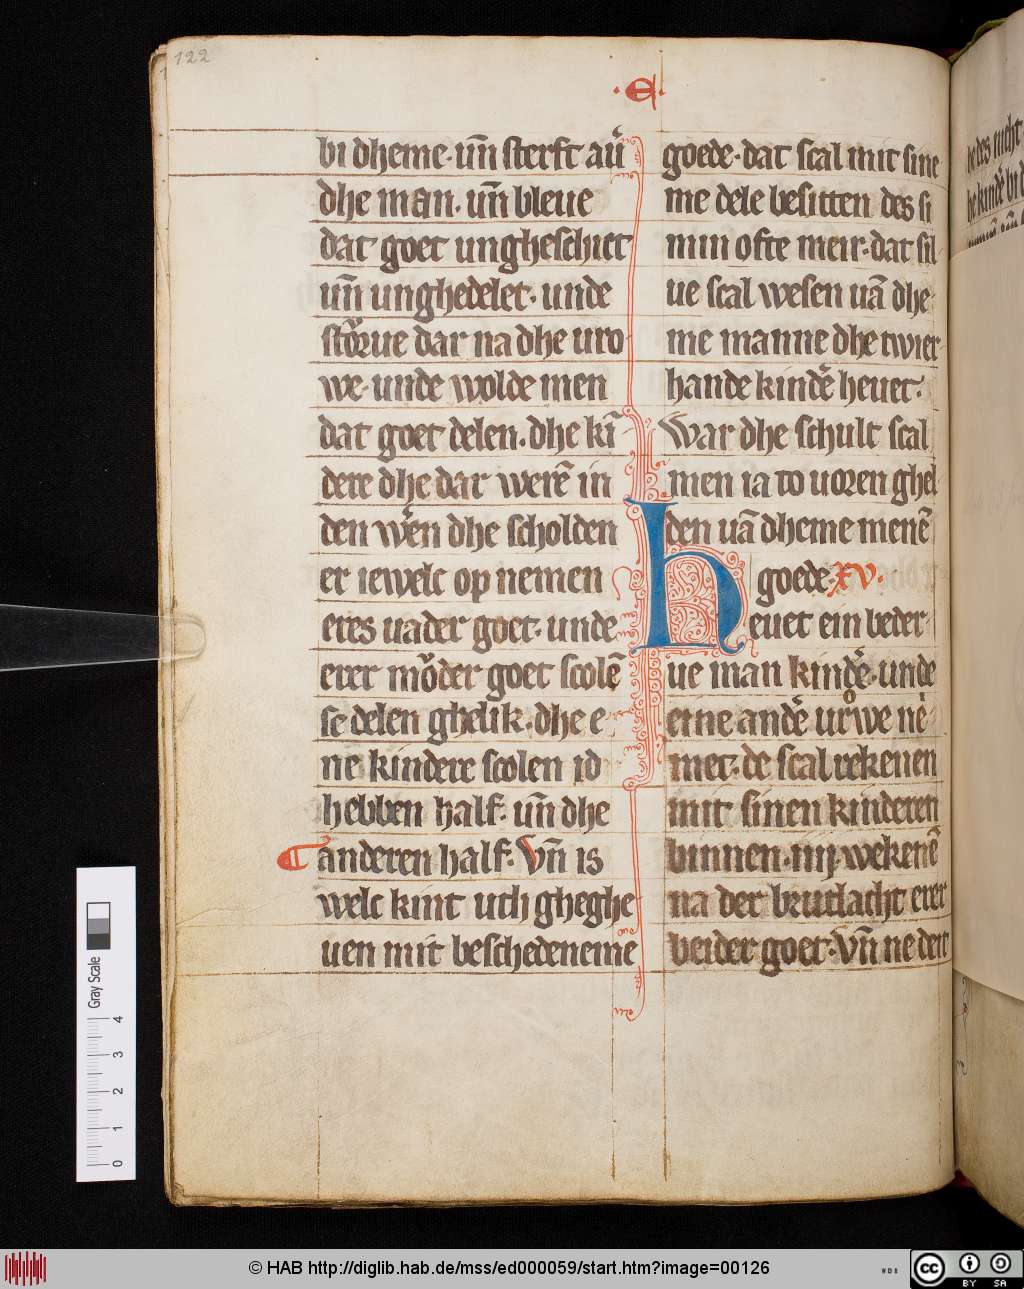 122
·E·
bi dheme· uñ sterft au͛
dhe man· uñ bleue
dat goet ungheschict
uñ unghedelet· unde
stoͤrue dar na dhe uro
we· unde wolde men
dat goet delen· dhe kī
dere dhe dar werē in
den wē͛n dhe scholden
er iewelc op nemen
eres uader goet· unde
erer moͮder goet scolē
se delen ghelik· dhe e
ne kindere scolen id
hebben half· uñ dhe
anderen half· Vñ is
welc kint uth gheghe
uen mit beschedeneme
goede· dat scal mit sine
me dele besitten des si
min ofte meir· dat sil
ue scal wesen uā dhe
me manne dhe twier
hande kinde͛ heuet·
War dhe schult scal
men ia to uoren ghel
den uā dheme menē
goede· XV·
Heuet ein beder
ue man kinde͛· unde
eine ande͛ uroͮwe nē
met· de scal rekenen
mit sinen kinderen
binnen· iiij· wekenē
na der brutlacht erer
beider goet· Vñ ne deit
Gray Scale
0 1 2 3 4
© HAB http://diglib.hab.de/mss/ed000059/start.htm?image=00126
WDB
CC BY SA